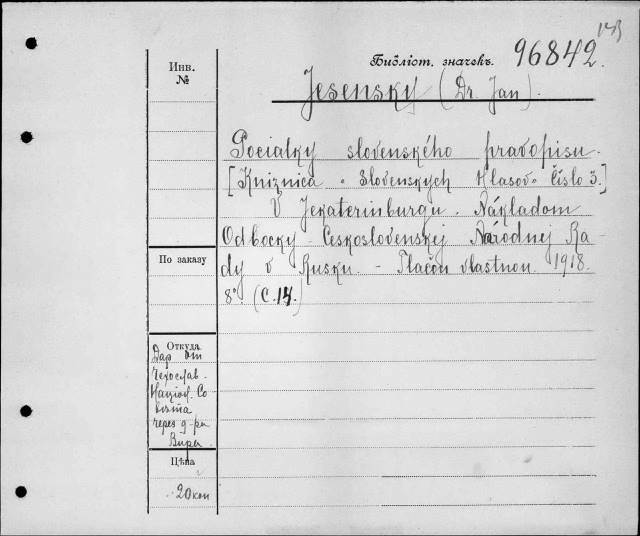 143
Библіот. значекъ. 96842.
Инв.
№
Jesenský (Dr. Jan).
Pociatky slovenského pravopisu.
[Kniznica "Slovenských Hlasov" Číslo 3.]
V Jekaterinburgu. Nákladom
Odbocky Ceskoslovenskej Národnej Ra-
dy v Rusku. – Tlačou vlastnou. 1918.
8°. (С. 14.)
По заказу
Откуда
Дар от
Чехослав.
Націон. Со
вѣта
через д-ра
Цѣна
20 коп